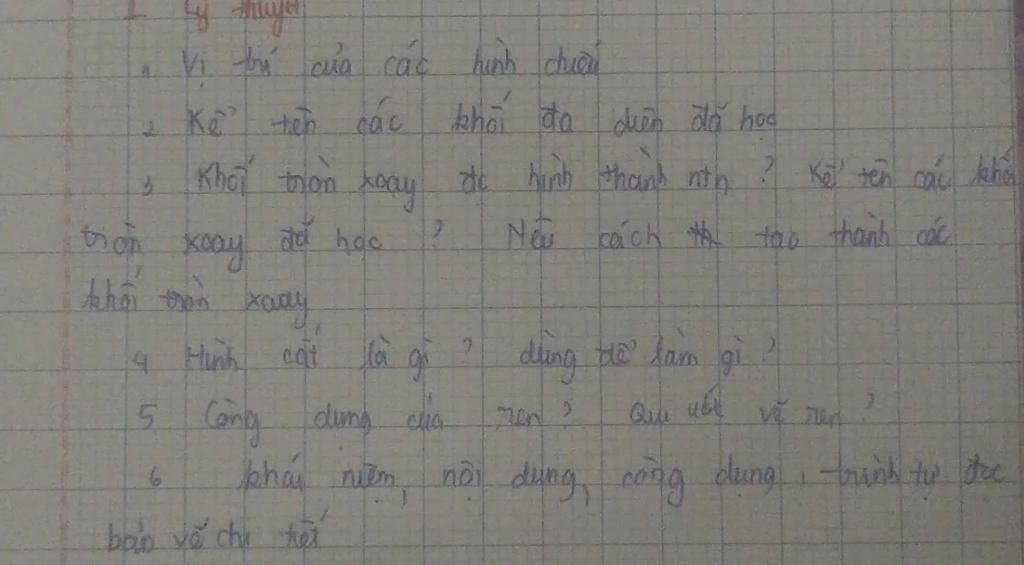 I Lý thuyết
1 Vị trí của các hình chiếu
2 Kể tên các khối đa diện đã học
3 Khối tròn xoay đc hình thành ntn ? Kể tên các khối
tròn xoay đã học ? Nêu cách tạo thành các
khối tròn xoay
4 Hình cắt là gì ? dùng để làm gì ?
5 Công dụng của ren ? Qui ước vẽ ren ?
6 khái niệm, nội dung, công dụng, trình tự đọc
bản vẽ chi tiết